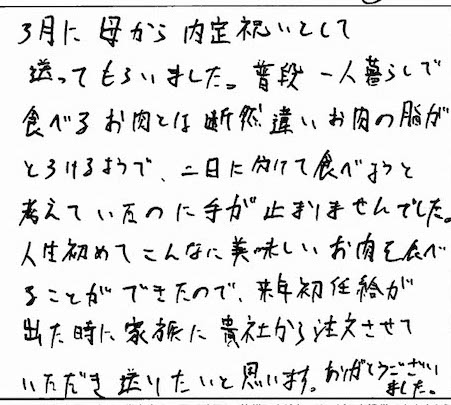 3月に母から内定祝いとして
送ってもらいました。普段一人暮らしで
食べるお肉とは断然違いお肉の脂が
とろけるようで、二日に分けて食べようと
考えていたのに手が止まりませんでした。
人生初めてこんなに美味しいお肉を食べ
ることができたので、来年初任給が
出た時に家族に貴社から注文させて
いただき送りたいと思います。ありがとうござい
ました。